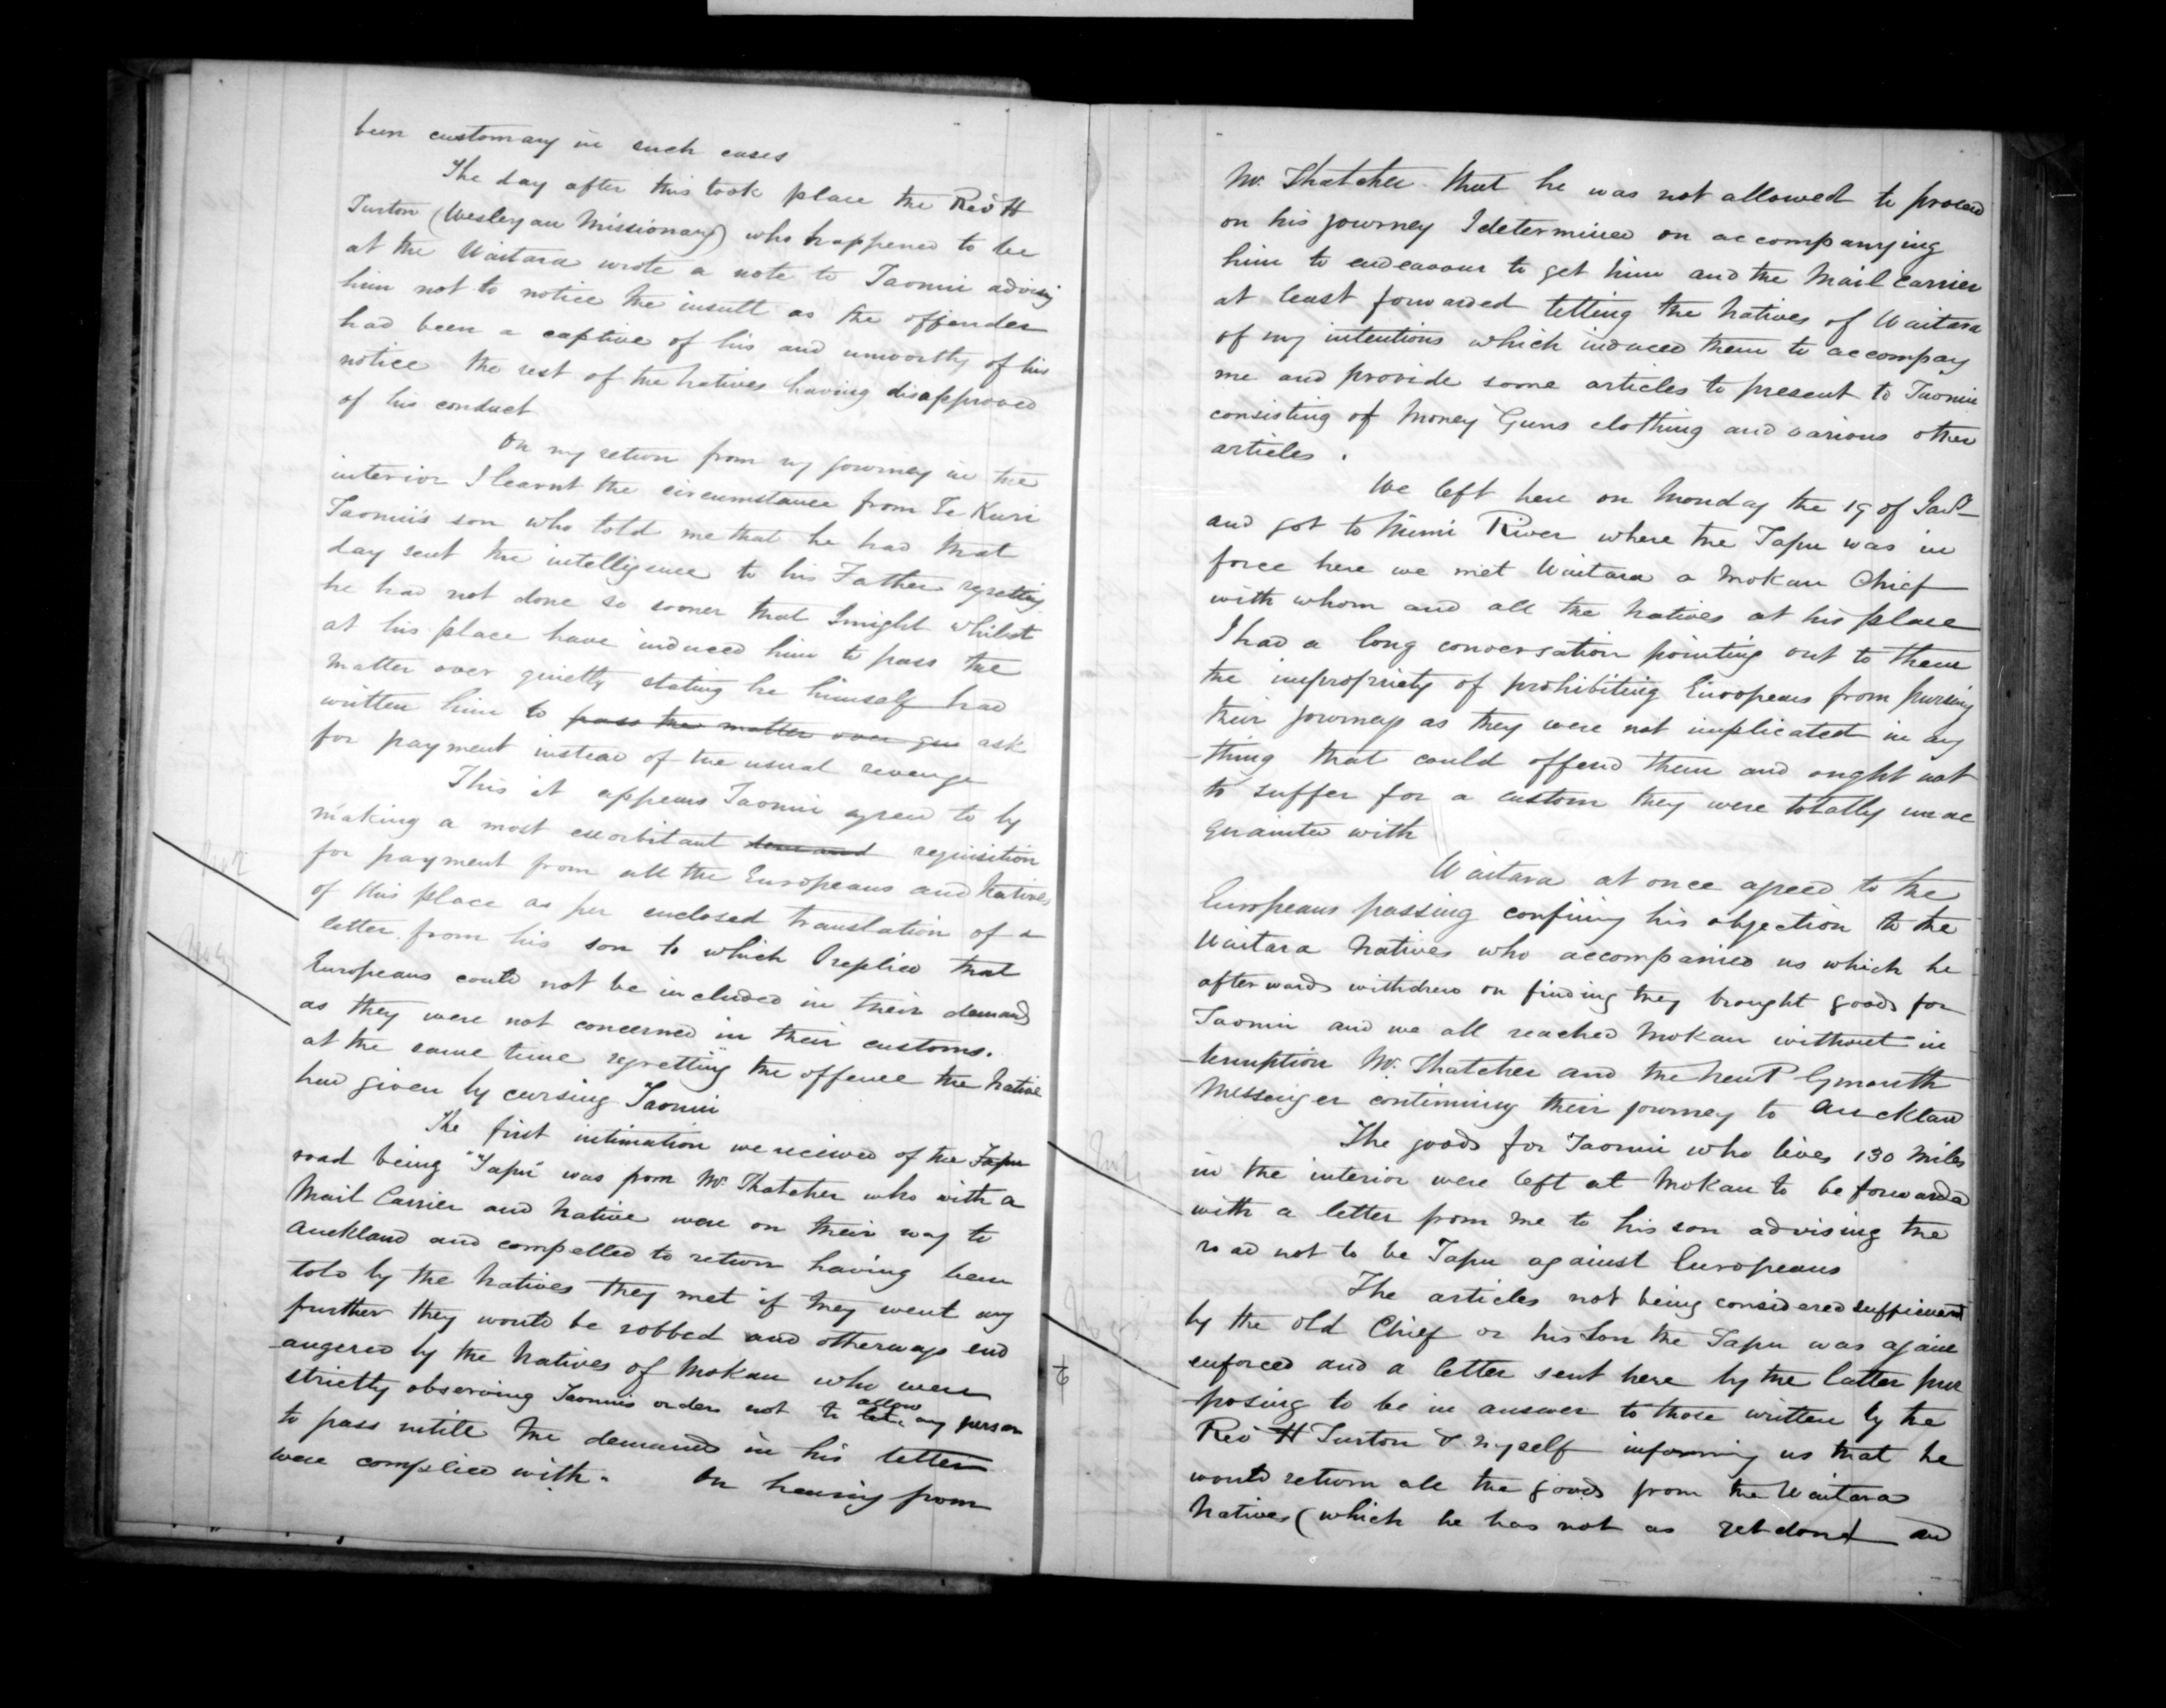 been customary in such cases
The day after this took place the Revd H
Turton (Wesleyan Missionary) who happened to be
at the Waitara wrote a note to Taonui advising
him not to notice the insult as the offender
had been a captive of his and unworthy of his
notice the rest of the Natives having disapproved
of his conduct
On my return from my journey in the
interior I learnt the circumstance from Te Kuri
Taonui's son who told me that he had that
day sent the intelligence to his Father regretting
he had not done so sooner that I might whilst
at his place have induced him to pass the
matter over quietly stating he himself had
written him to pass the matter over qui ask
for payment instead of the usual revenge
This it appears Taonui agreed to by
making a most exorbitant demand requisition
for payment from all the Europeans and Natives
of this place as per enclosed translation of a
letter from his son to which I replied that
Europeans could not be included in their demand
as they were not concerned in their customs.
at the same time regretting the offence the Native
had given by cursing Taonui
The first intimation we received of the Tapu
road being "Tapu" was from Mr Thatcher who with a
Mail Carrier and Native were on their way to
Auckland and compelled to return having been
told by the Natives they met if they went any
further they would be robbed and otherways end
angered by the Natives of Mokau who were
strictly observing Taonuis orders not to let allow any person
to pass untill the demands in his letter
were complied with. On hearing from
No 2
No 3
Mr Thatcher that he was not allowed to proceed
on his journey I determined on accompanying
him to endeavour to get him and the Mail Carrier
at least forwarded telling the Natives of Waitara
of my intentions which induced them to accompany
me and provide some articles to present to Taonui
consisting of Money Guns clothing and various other
articles.
We left here on Monday the 19 of
and got to Mimi River where the Tapu was in
force here we met Waitara a Mokau Chief
with whom and all the Natives at his place
I had a long conversation pointing out to them
the impropriety of prohibiting Europeans from pursuing
their journeys as they were not implicated in any
-thing that could offend them and ought not
to suffer for a custom they were totally unac
quainted with
Waitara at once agreed to the
Europeans passing confining his objection to the
Waitara Natives who accompanied us which he
afterwards withdrew on finding they brought goods for
Taonui and we all reached Mokau without in
-terruption Mr Thatcher and the New Plymouth
Messenger continuing their journey to Aucklan
The goods for Taonui who lives 130 Miles
in the interior were left at Mokau to be forwarded
with a letter from me to his son advising the
road not to be Tapu against Europeans
The articles not being considered sufficient
by the old Chief or his Son the Tapu was again
enforced and a letter sent here by the latter pur
-posing to be in answer to those written by the
Revd H Turton & myself informing us that he
would return all the goods from the Waitara
Natives (which he has not as yet done) and